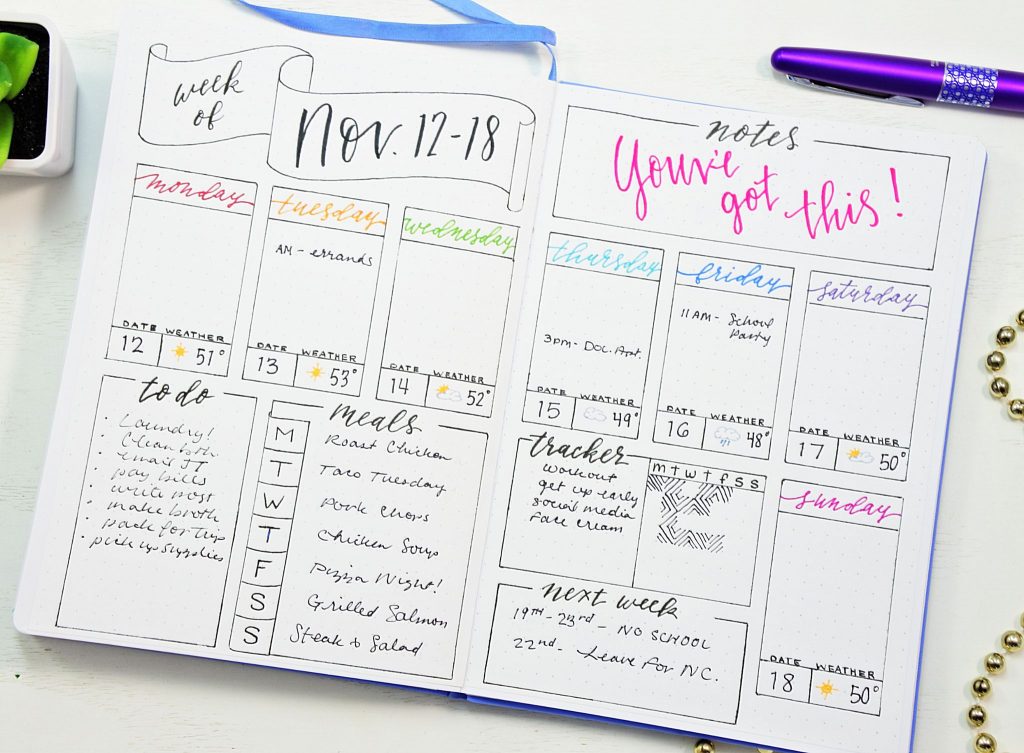 week
of
Nov. 12-18
monday
DATE WEATHER
12 51°
tuesday
AM - errands
DATE WEATHER
13 53°
wednesday
DATE WEATHER
14 52°
to do
Laundry!
Clean bth
email JT
pay bills
write post
make broth
pack for trip
pick up supplies
meals
M Roast Chicken
T Taco Tuesday
W Pork Chops
T Chicken Soup
F Pizza Night!
S Grilled Salmon
S Steak & Salad
notes
You've
got this!
thursday
3pm - Doc. Appt.
DATE WEATHER
15 49°
friday
11 AM - School
Party
DATE WEATHER
16 48°
saturday
DATE WEATHER
17 50°
tracker
m t w t f s s
workout
get up early
social media
face cream
sunday
DATE WEATHER
18 50°
next week
19TH - 23rd - NO SCHOOL
22nd - Leave for NC.